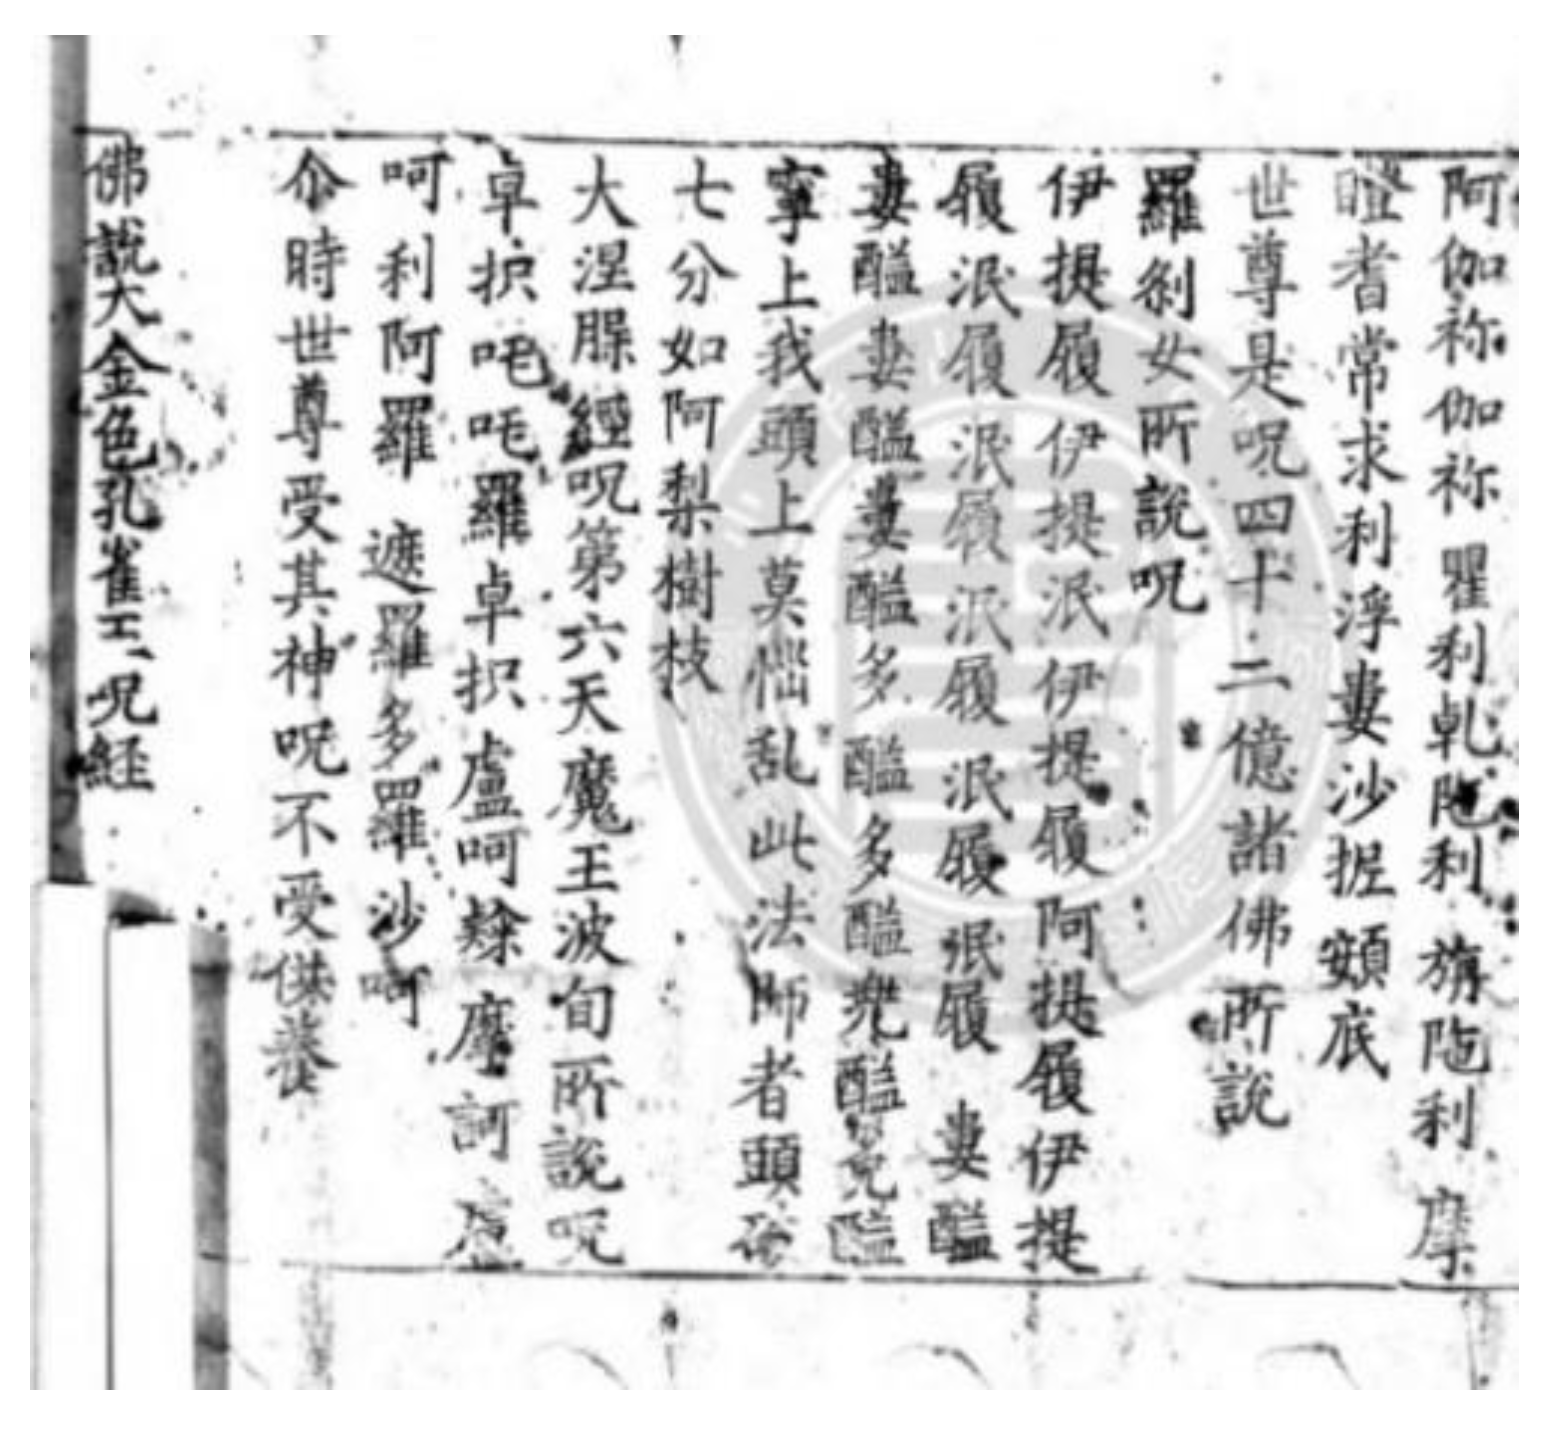 阿伽祢伽祢瞿利乹陁利旃陁利摩
耆常求利浮婁沙抳頞底
世尊是呪四十二億諸佛所說
羅刹女所說呪
伊提履伊提泯伊提履阿提履伊提
履泯履泯履泯履泯履泯履婁醯
婁醯婁醯婁醯多醯多醯兠醯兠醯
寧上我頭上莫惱乱此法師者頭破
七分如阿梨樹枝
大涅槃經呪第六天魔王波旬所說呪
卓抧吒吒羅卓抧盧呵隸摩訶盧
呵利阿羅遮羅多羅沙呵
尒時世尊受其神呪不受供養
佛說大金色孔雀王呪経